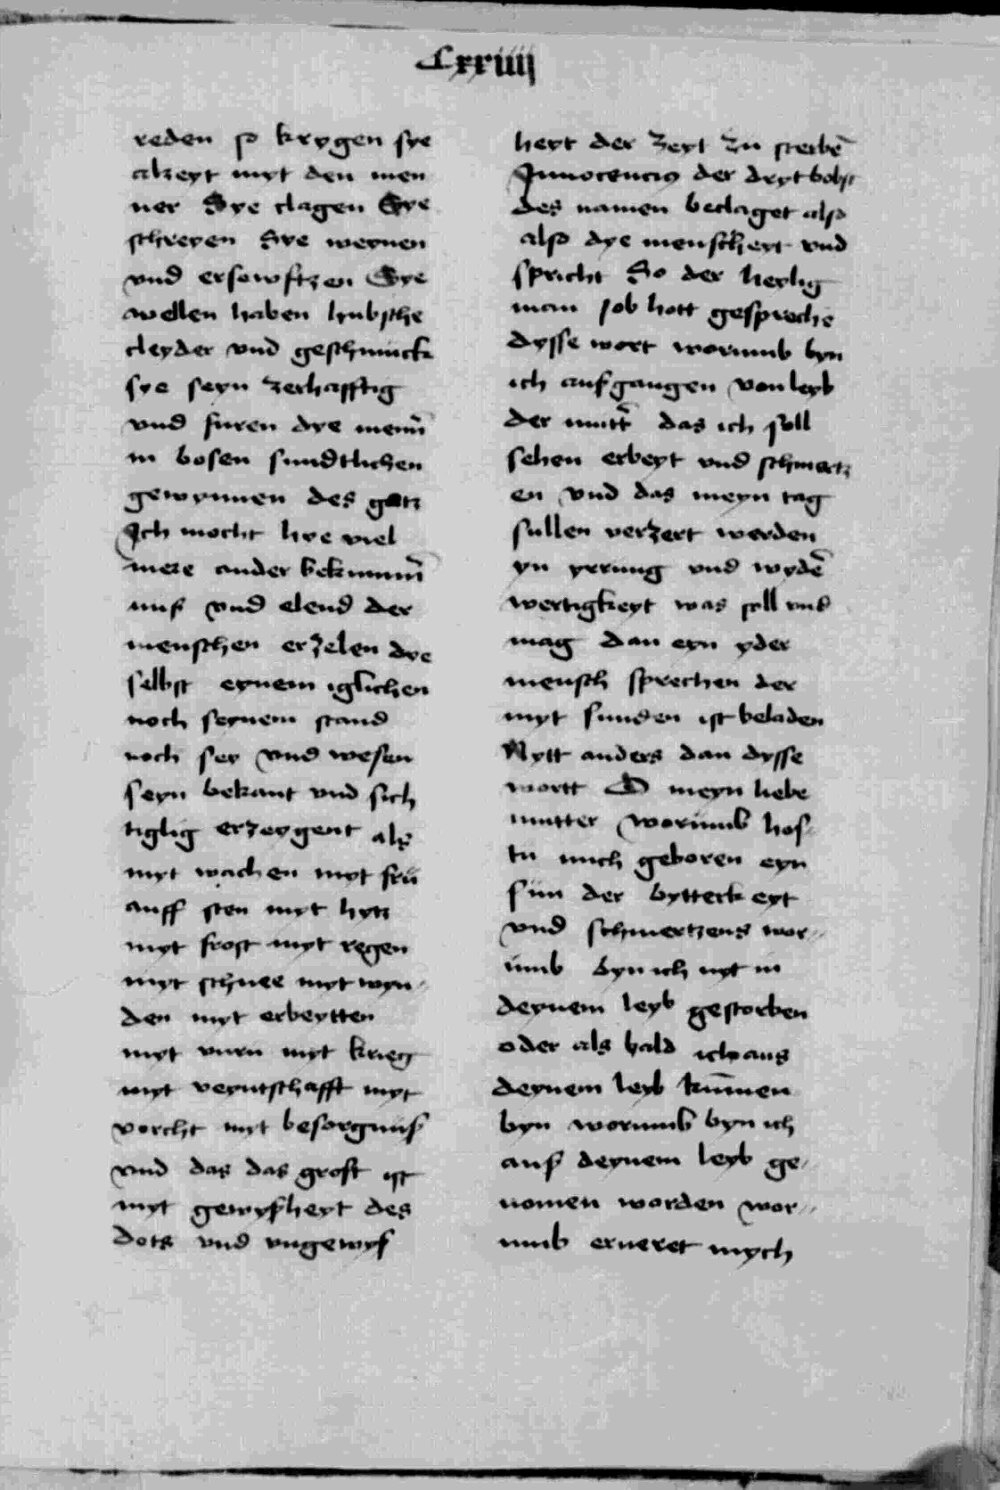 Cxxiiij
reden so krygen sye
alzeyt myt den men
ner Sye clagen Sye
schreyen Sye weynen
vnd ersewftzen Sye
wellen haben hubsche
cleyder vnd geschmuck
sye seyn zerhafftig
vnd furen dye menñ
in bosen sundtlichen
gewynnen des gutz
Ich mocht hye viel
mere ander bekummer̄
nuß vnd elend der
menschen erzelen dye
selbst eynem iglichen
noch seynem stand
noch sey vnd wesen
seyn bekant vnd sich
tiglig erzeygent als
myt wachen myt frü
auff sten myt hytz
myt frost myt regen
myt schnee myt wyn„
den myt erbeytten
myt vnru myt krieg
myt veyntschafft myt
vorcht myt besorgnuß
vnd das das grost ist
myt gewyßheyt des
dots vnd vngewyß
heyt der zeyt zu sterbē
Innocencius der drytbobst
des namen beclaget also
also dye menscheyt vnd
spricht So der heylig
man Job hott gesprochē
dysse wort worumb byn
ich außgangen von leyb
der mutt̄ das ich soll
sehen erbeyt vnd schmertz
en vnd das meyn tag
sullen verzert werden
yn yrrung vnd wydē
wertigkeyt was soll vnd
mag dan eyn yder
mensch sprechen der
myt sunden ist beladen
Nytt anders dan dysse
wortt O meyn liebe
mutter worumb hos„
tu mich geboren eyn
sun der bytterkeyt
vnd schmertzens wor„
umb byn ich nyt in
deynem leyb gestorben
oder als bald ich aus
deynem leyb kūmen
byn worumb byn ich
auß deynem leyb ge„
nomen worden wor„
umb erneret mych